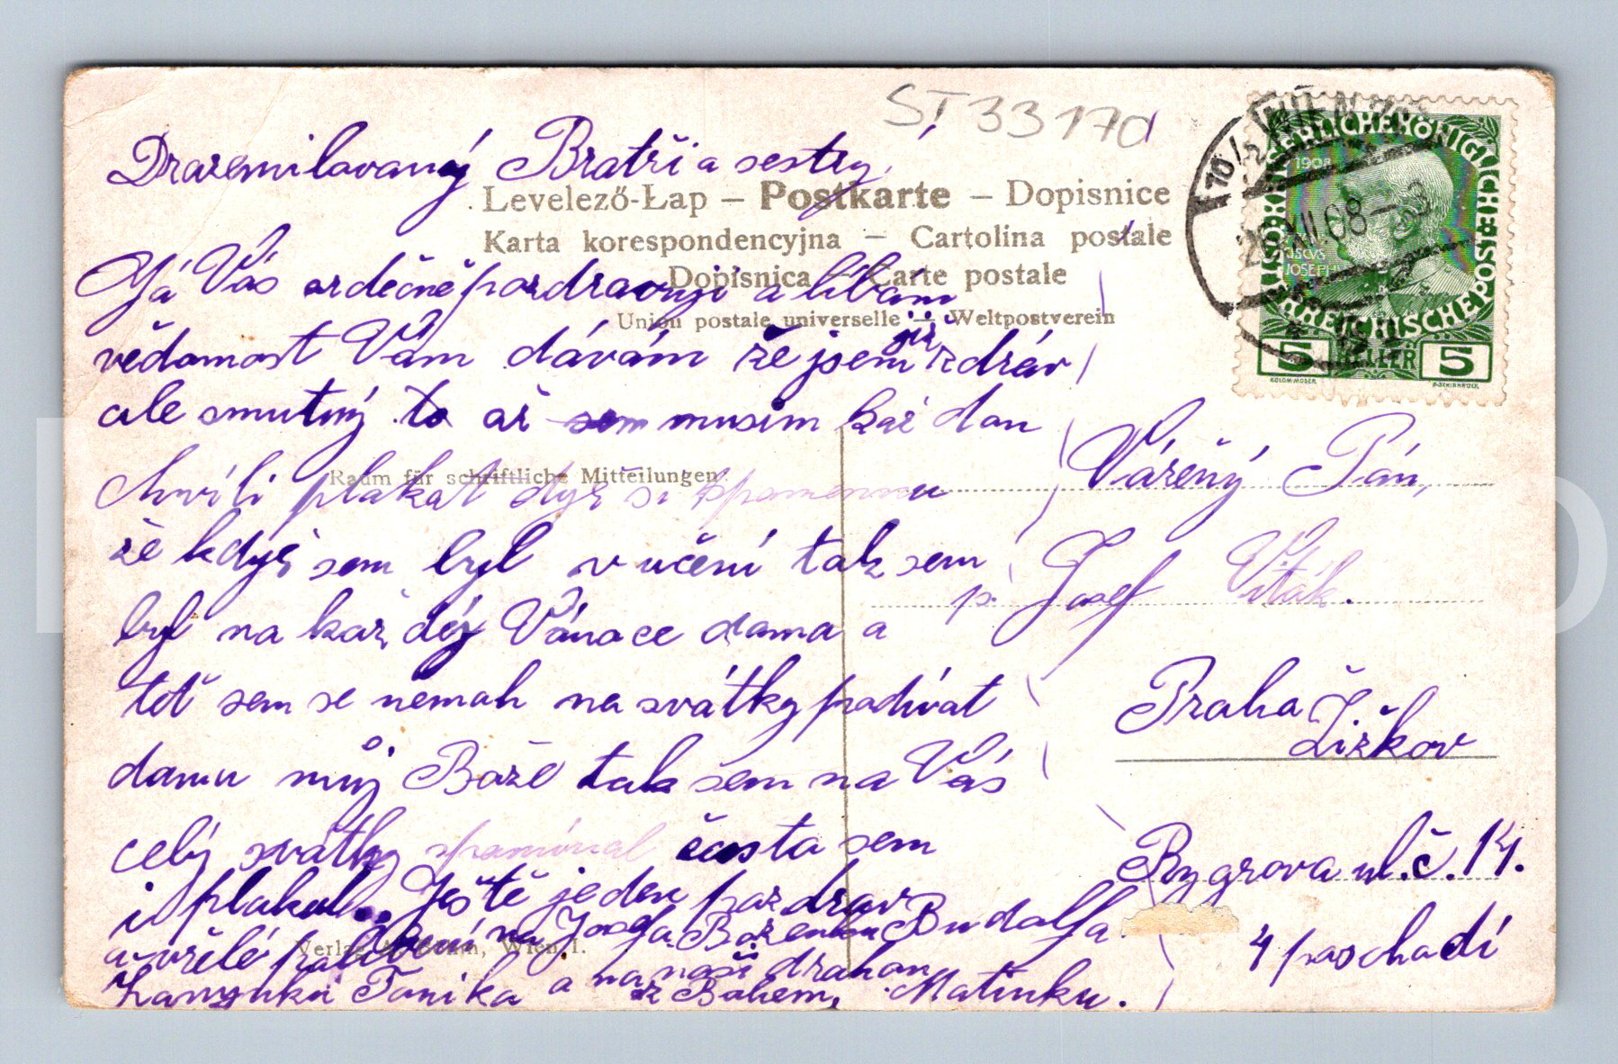 ST 3317d
Drazemilovaný Bratři a sestry!
Levelező-Łap – Postkarte – Dopisnice
Karta korespondencyjna – Cartolina postale
Dopisnica – Carte postale
Union postale universelle – Weltpostverein
Já Vás srdečně pozdravuji a líbám
vědomost Vám dávám že jsem již zdráv
ale smutný to až sem musím každ don
Raum für schriftliche Mitteilungen.
chvíli plakat dyž si spomennu
že když sem byl v učení tak sem
byl na každéj Vánoce doma a
toť sem se nemoh na svátky podívat
domu můj Bože tak sem na Vás
celý svátky spomínal často sem
i plakal. Ještě jeden pozdrav
a vřelé políbení na Josefa Boženku Rudolfa
Verlag, Wien, I.
Tonika a na naši drahou
z Bohem, Matinku.
WIEN
XII.08
1908
KAISERLICHE KÖNIGLICHE
ÖSTERREICHISCHE POST
5 HELLER 5
KOLOM.MOSER
Vážený Pán,
p. Josef Viták.
Praha
Žižkov
Rygrova ul.č. 14.
4 poschodí